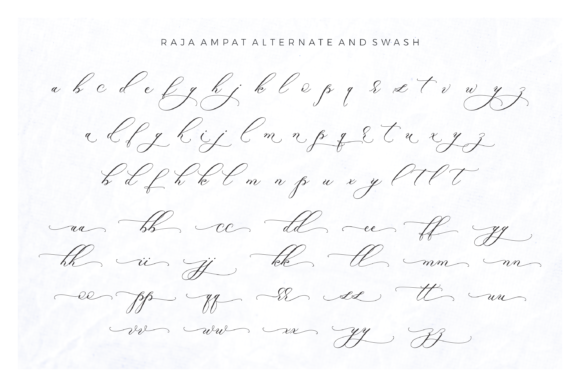 RAJA AMPAT ALTERNATE AND SWASH
a b c d e f g h j k l o p q r s t v w y z
a d f g h i j l m n p q r t u x y z
b d f h k l m n p u x y l t l t
aa bb cc dd ee ff gg
hh ii jj kk ll mm nn
oo pp qq rr ss tt uu
vv ww xx yy zz